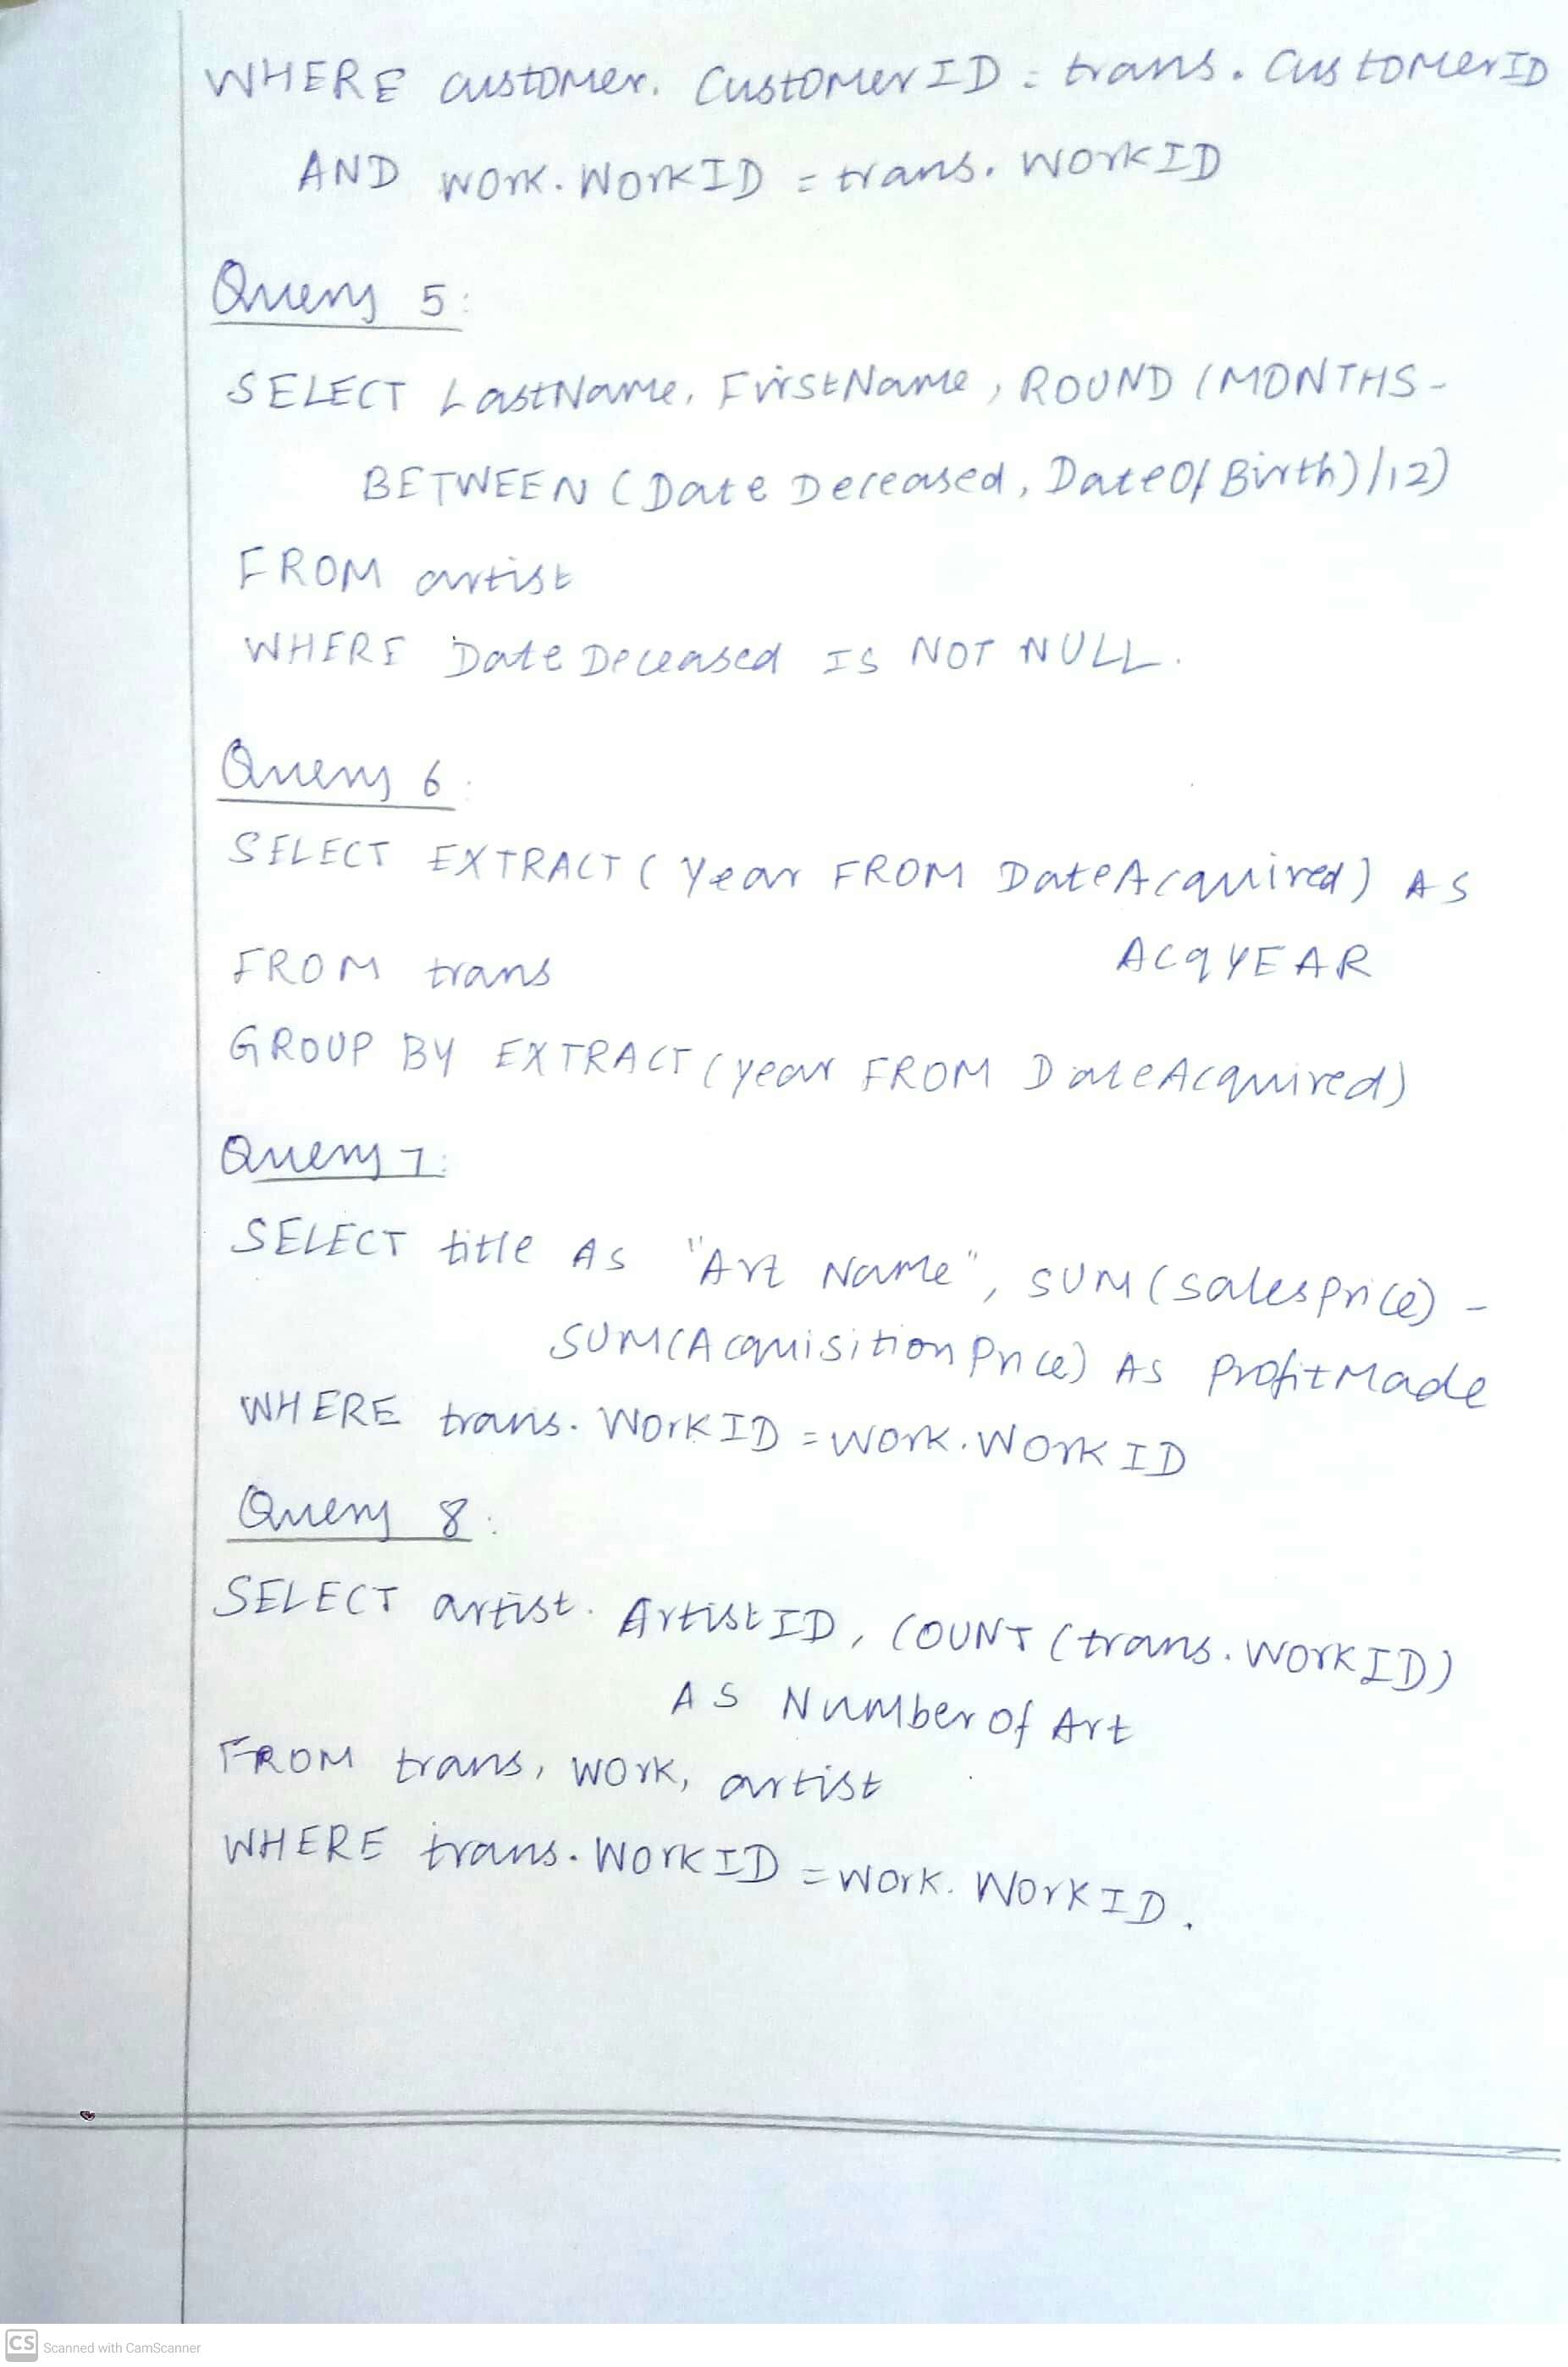 WHERE customer. CustomerID = trans. CustomerID
AND work. WorkID = trans. WorkID
Query 5:
SELECT LastName, FirstName, ROUND (MONTHS-
BETWEEN (Date Deceased, DateOf Birth)/12)
FROM artist
WHERE Date Deceased IS NOT NULL.
Query 6:
SELECT EXTRACT ( Year FROM DateAcquired) AS
ACqYEAR
FROM trans
GROUP BY EXTRACT (year FROM DateAcquired)
Query 7:
SELECT title AS "Art Name", SUM (SalesPrice) -
SUM(Acquisition Price) AS ProfitMade
WHERE trans. WorkID = work. WorkID
Query 8:
SELECT artist. ArtistID, COUNT (trans. WorkID)
AS Number of Art
FROM trans, work, artist
WHERE trans. WorkID = work. WorkID.
CS Scanned with CamScanner